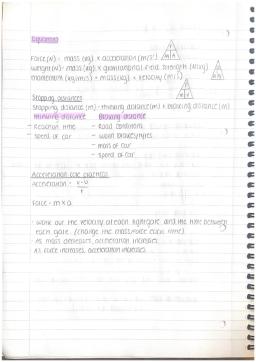 Equations
Force(N) = mass (kg) x acceleration (m/s²)
weight(N) = mass (kg) x gravitational field strength (N/kg)
momentum (kgm/s) = mass (kg) x velocity (m/s)
Stopping distances
Stopping distance (m) = thinking distance (m) + braking distance (m)
Thinking distance Braking distance
- Reaction time - Road conditions
- speed of car - worn brakes/tyres
- mass of car
- speed of car
Acceleration core practical
Acceleration = v-u
t
Force = m x a
- work out the velocity at each light gate and the time between
each gate. (change the mass/force each time)
- As mass decreases, acceleration increases
- As force increases, acceleration increases